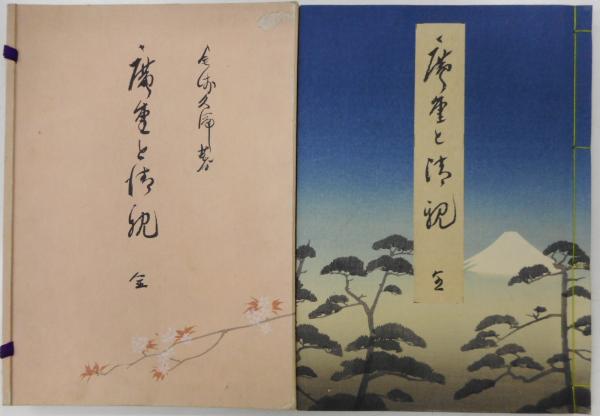 著
廣重と清親
全
廣重と清親
全